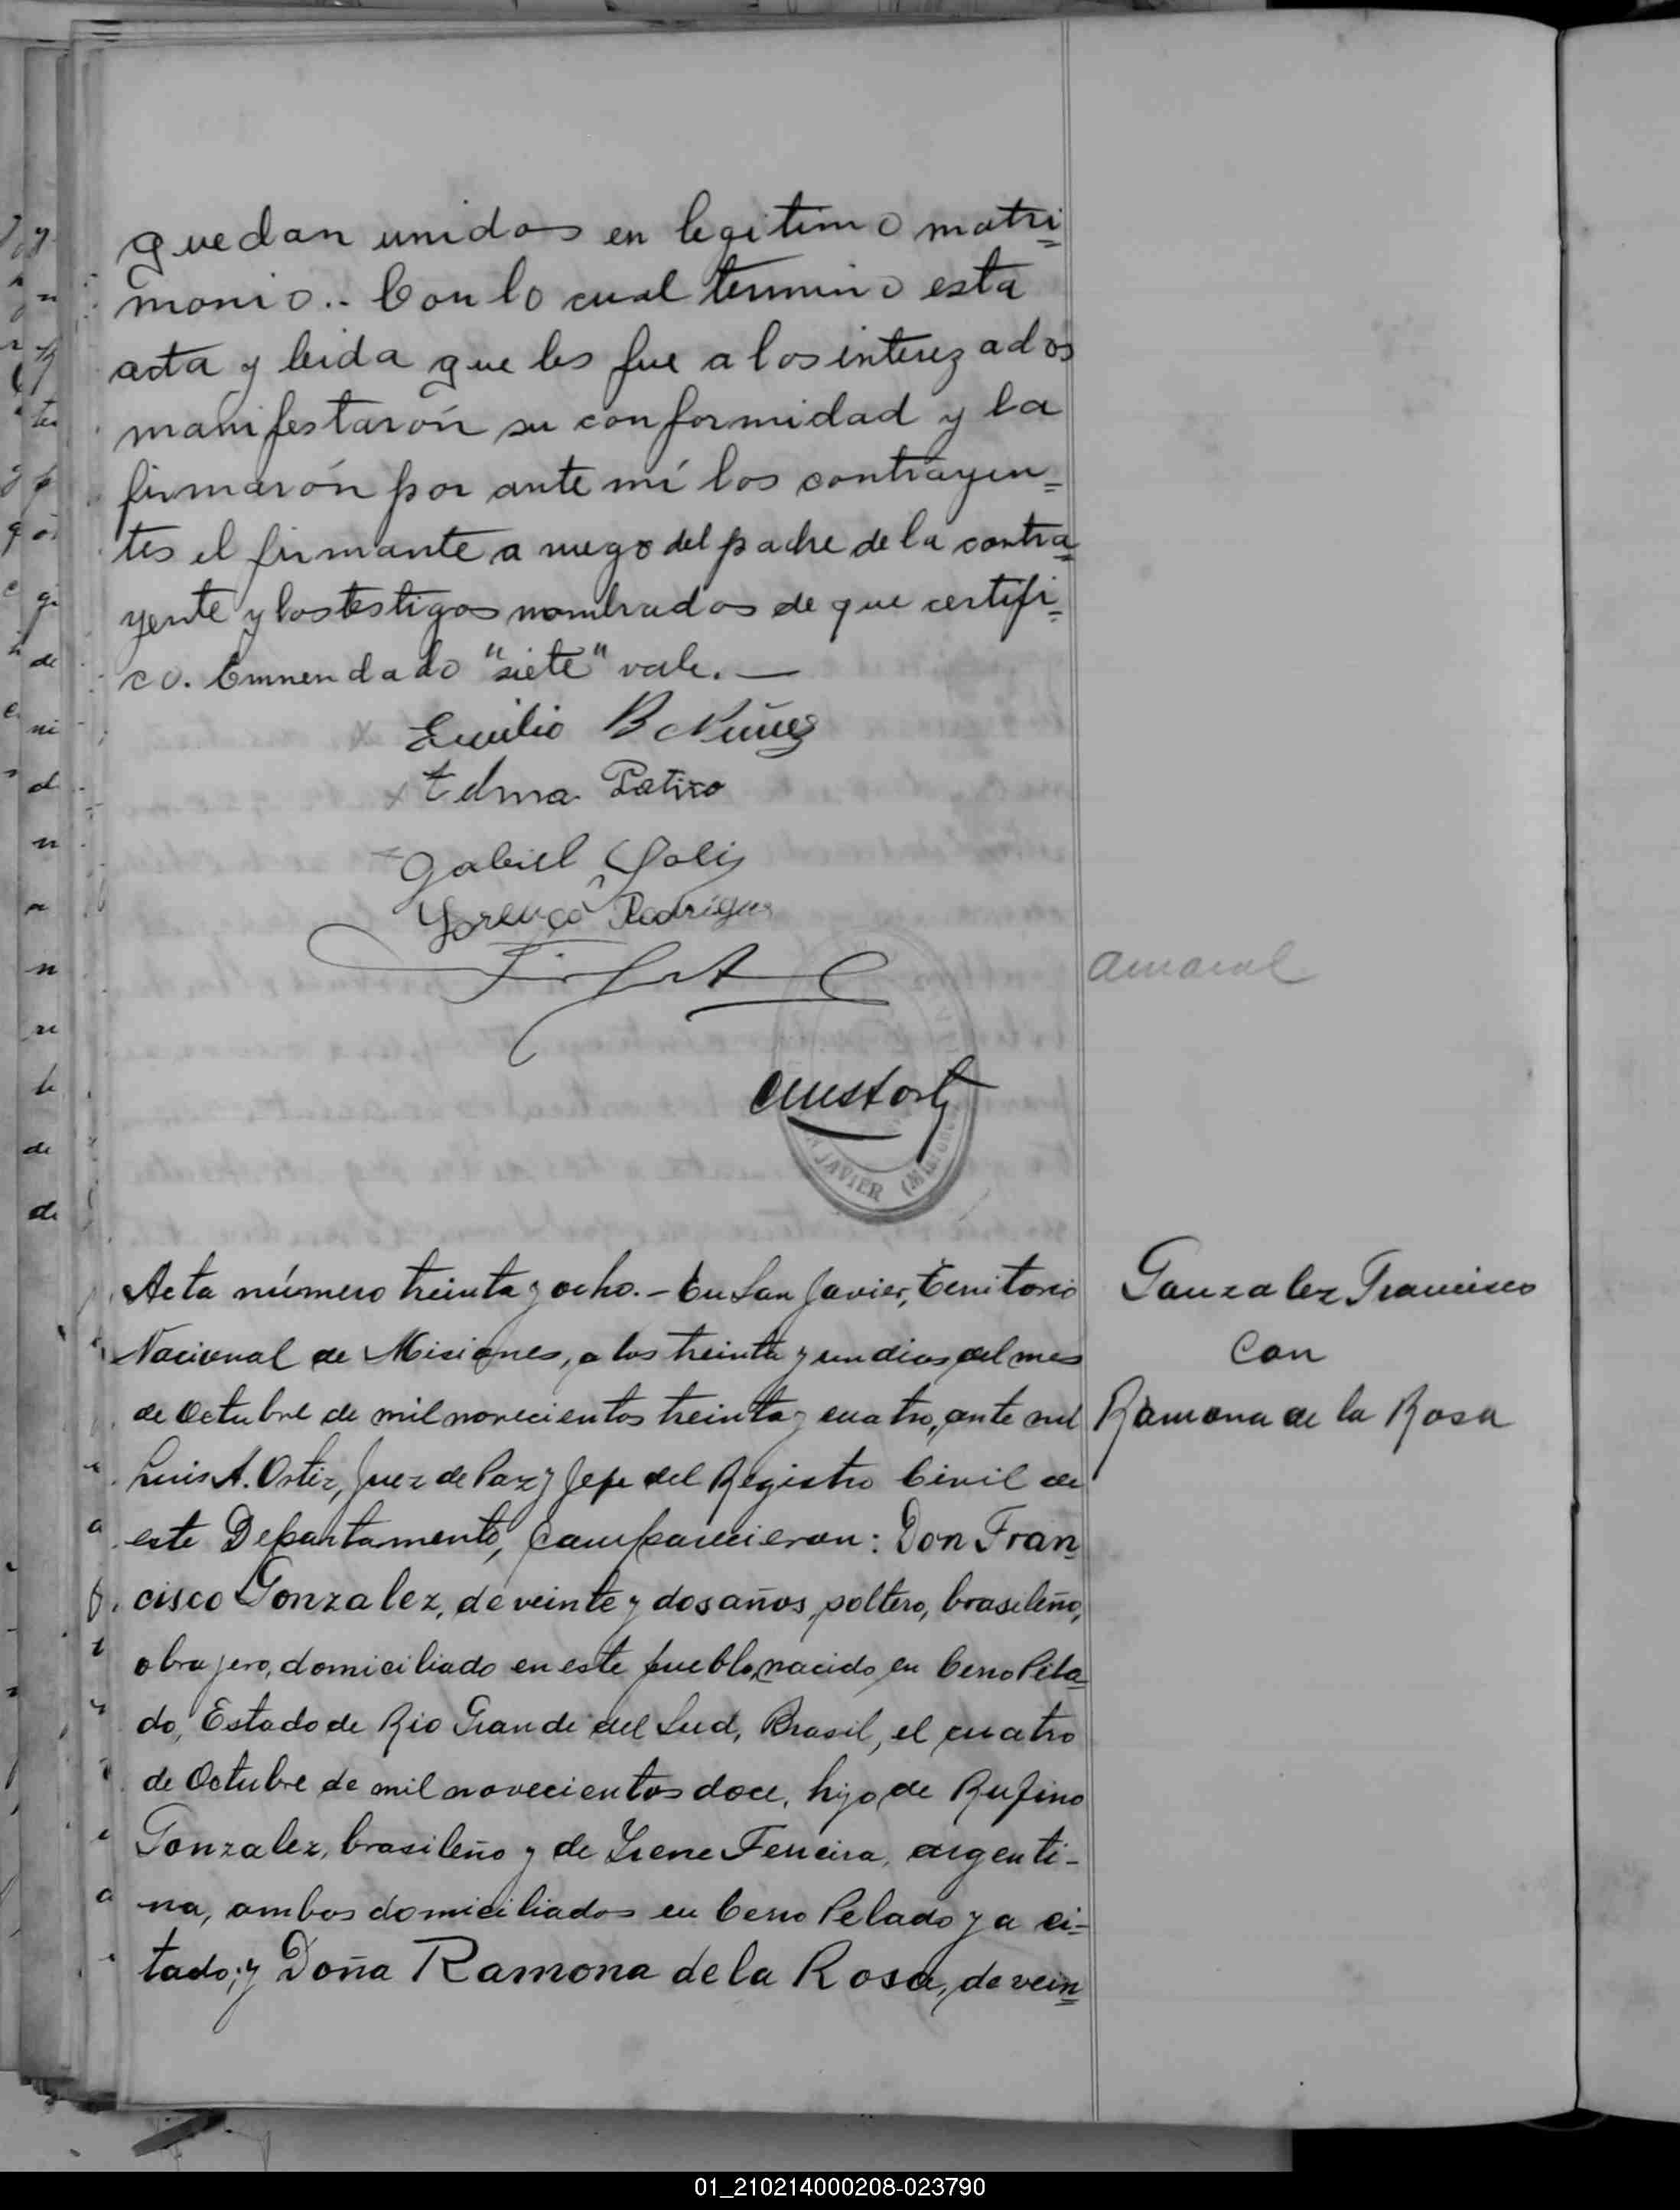 quedan unidos en legitimo matri=
monio.. Con lo cual termino esta
acta y leida que les fue a los interezados
manifestarón su conformidad y la
firmarón por ante mí los contrayen=
tes el firmante a ruego del padre de la contra=
yente y los testigos nombrados de que certifi=
co. Enmendado "siete" vale. —
Emilio B Nuñez
x telma
Gabriel Solis
Lorenço Rodrigues
amaral
JAVIER
Acta número treinta y ocho. - En San Javier, Territorio
Nacional de Misiones, a los treinta y un dias del mes
de Octubre de mil novecientos treinta y cuatro, ante mi
Luis A. Ortiz, Juez de Paz y Jefe del Registro Civil de
este Departamento, comparecieron: Don Fran=
cisco Gonzalez, de veinte y dos años, soltero, brasileño,
obrajero, domiciliado en este pueblo, nacido en Cerro Pela=
do, Estado de Rio Grande del Sud, Brasil, el cuatro
de Octubre de mil novecientos doce, hijo de Rufino
Gonzalez, brasileño y de Irene Ferreira, argenti-
na, ambos domiciliados en Cerro Pelado ya ci=
tado; y Doña Ramona de la Rosa, de vein=
Gonzalez Francisco
con
Ramona de la Rosa
01_210214000208-023790